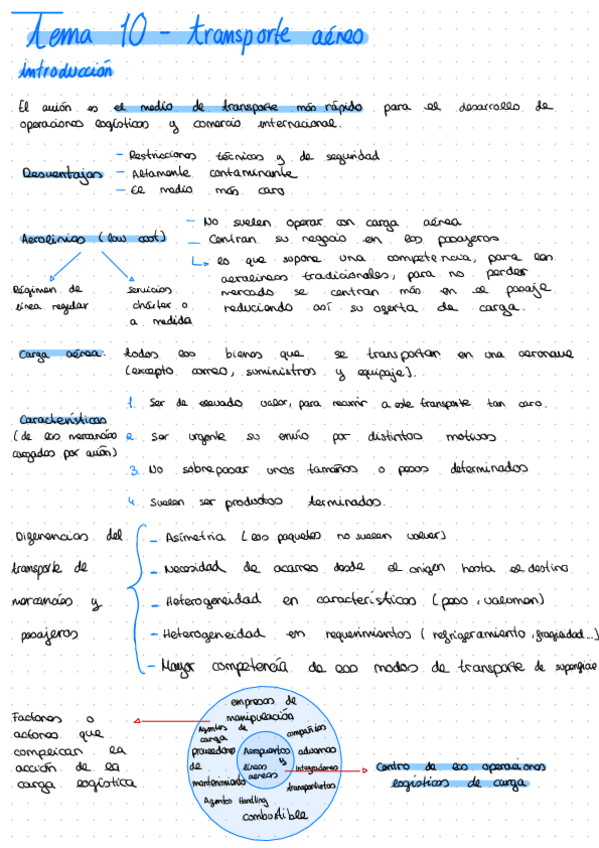 Tema 10 - transporte aéreo
introducción
El avión es el medio de transporte más rápido para el desarrollo de
operaciones logísticas y comercio internacional.
Desventajas
- Restricciones técnicas y de seguridad
- Altamente contaminante
- El medio más caro
Aerolíneas (low cost)
- No suelen operar con carga aérea
- Centran su negocio en los pasajeros
↳ lo que supone una competencia, para las
aerolíneas tradicionales, para no perder
mercado se centran más en el pasaje
reduciendo así su oferta de carga.
Régimen de
línea regular
servicios
chárter o
a medida
Carga aérea: todos los bienes que se transportan en una aeronave
(excepto correo, suministros y equipaje).
Características
(de las mercancías
cargadas por avión)
1. Ser de elevado valor, para recurrir a este transporte tan caro.
2. Ser urgente su envío por distintos motivos
3. No sobrepasar unos tamaños o pesos determinados
4. Suelen ser productos terminados.
Diferencias del
transporte de
mercancías y
pasajeros
- Asimetría (los paquetes no suelen volver)
- Necesidad de acarreo desde el origen hasta el destino
- Heterogeneidad en características (peso, volumen)
- Heterogeneidad en requerimientos (refrigeramiento, fragilidad...)
- Mayor competencia de los modos de transporte de superficie
Factores o
actores que
complican la
acción de la
carga logística
empresas de
manipulación
Agentes de
carga
compañías
proveedores
de
mantenimiento
Aeropuertos
y
líneas
aéreas
aduanas
integradores
transportistas
Agentes Handling
combustible
Centro de las operaciones
logísticas de carga